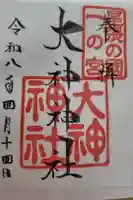 奉拝
一の宮
大神神社
大神
神社
令和八年四月十四日